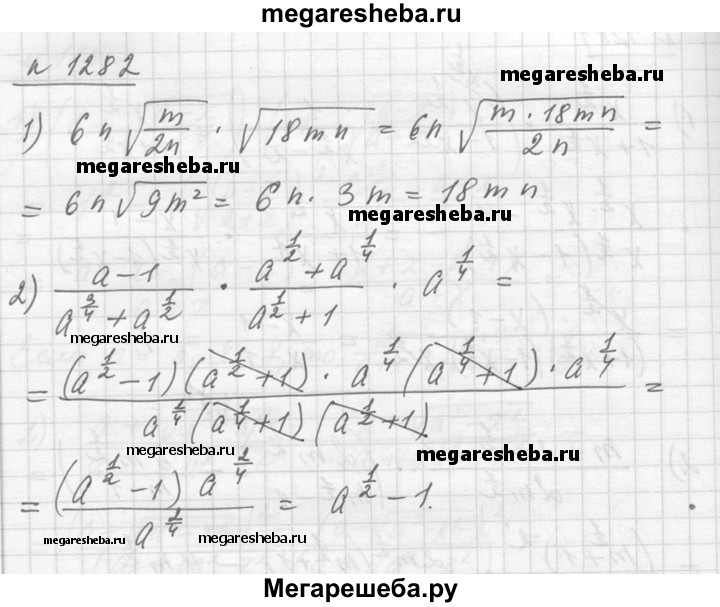 megaresheba.ru
n 1282
megaresheba.ru
1) 6n√(m/2n) · √(18mn) = 6n√(m·18mn/2n) =
megaresheba.ru
= 6n√(9m²) = 6n · 3m = 18mn
megaresheba.ru
2) (a-1)/(a^(3/4)+a^(1/2)) · (a^(1/2)+a^(1/4))/(a^(1/2)+1) · a^(1/4) =
megaresheba.ru
= ((a^(1/2)-1)(a^(1/2)+1) · a^(1/4)(a^(1/4)+1) · a^(1/4))/(a^(2/4)(a^(1/4)+1)(a^(1/2)+1)) =
megaresheba.ru megaresheba.ru
= ((a^(1/2)-1) a^(2/4))/a^(2/4) = a^(1/2)-1.
megaresheba.ru megaresheba.ru megaresheba.ru
Мегарешеба.ру